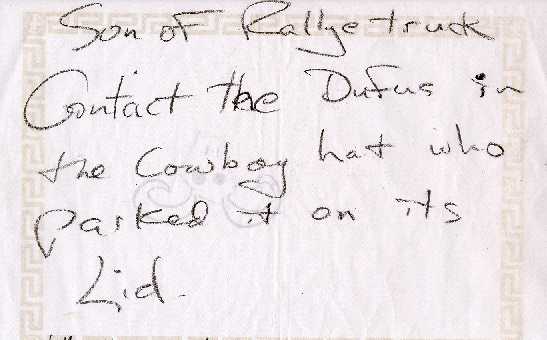 Son of Rallyetruck
Contact the Dufus in
the Cowboy hat who
parked it on its
Lid.